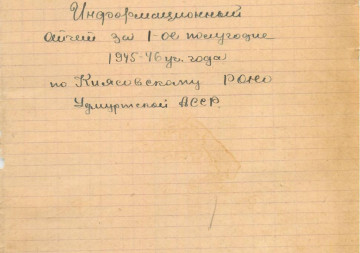 Информационный
отчет за 1-ое полугодие
1945-46 уч. года
по Киясовскому РОНО
Удмуртской АССР.